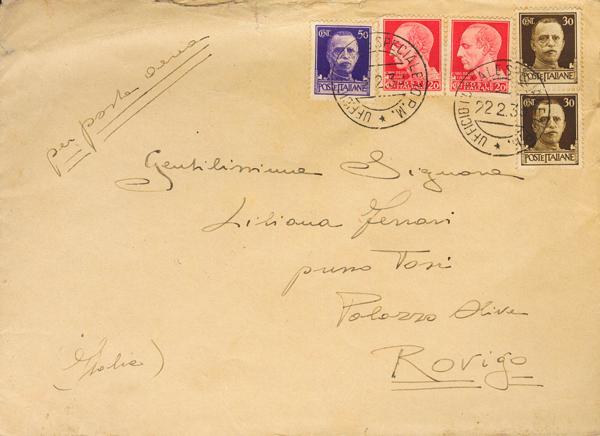 per posta aerea
CENT. 50
POSTE ITALIANE
20
20
CENT. 30
POSTE ITALIANE
30
POSTE ITALIANE
SPECIALE
P.M.
UFFICIO
22.2.3
UFFICIO
Gentilissima Signora
Liliana Ferrari
presso Tosi
Palazzo Olive
Rovigo
(Italia)